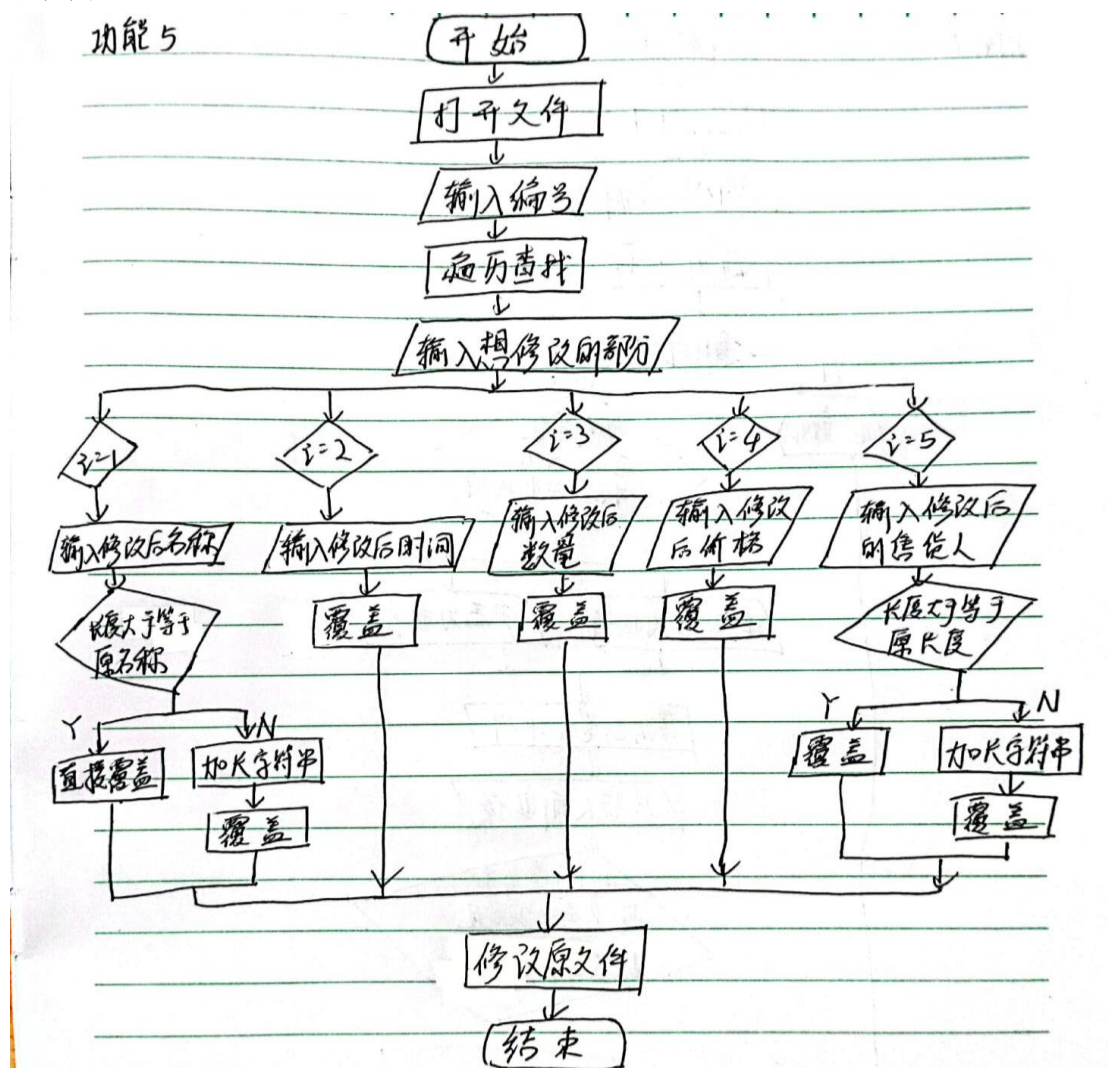 功能5
开始
打开文件
输入编号
遍历查找
输入想修改的部分
i=1
i=2
i=3
i=4
i=5
输入修改后名称
输入修改后时间
输入修改后
数量
输入修改
后价格
输入修改后
的售货人
长度大于等于
原名称
覆盖
覆盖
覆盖
长度大于等于
原长度
Y
N
Y
N
直接覆盖
加长字符串
覆盖
加长字符串
覆盖
覆盖
修改原文件
结束